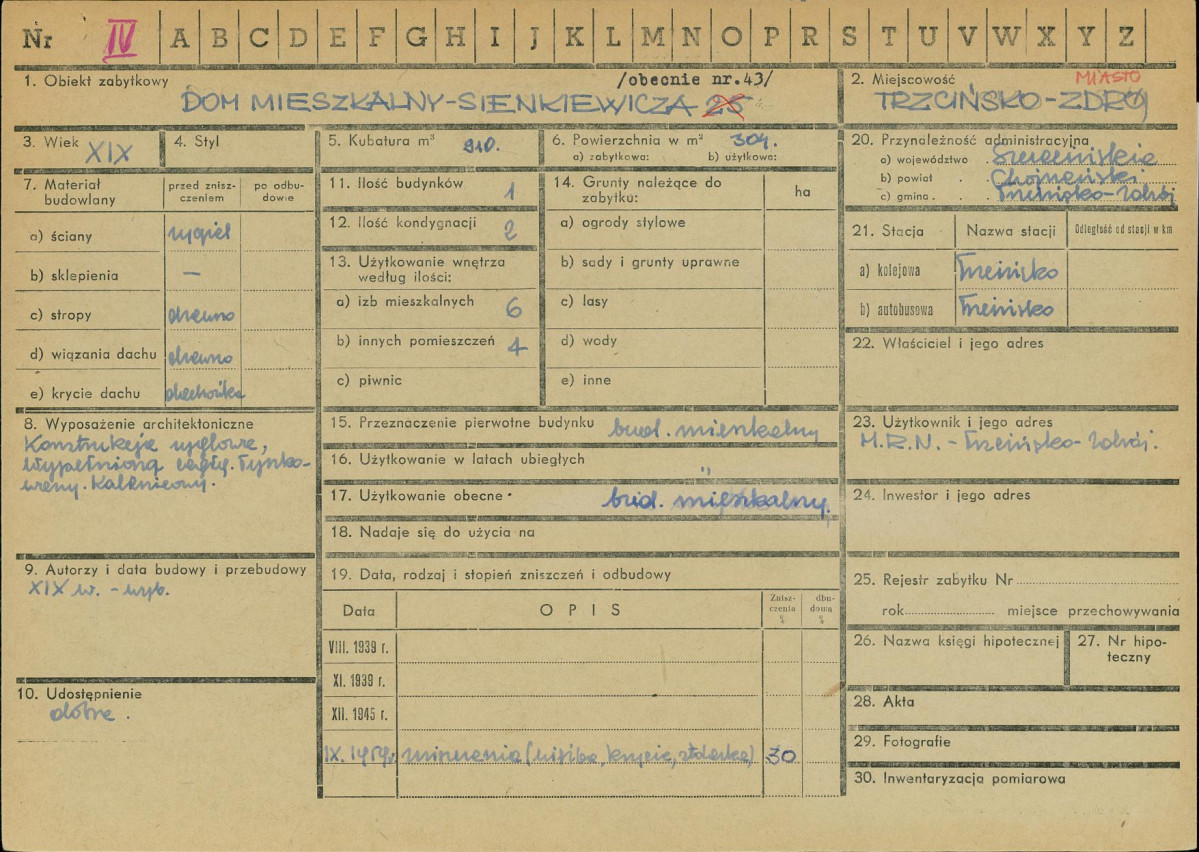 Nr IV A B C D E F G H I J K L M N O P R S T U V W X Y Z
1. Obiekt zabytkowy
/obecnie nr.43/
DOM MIESZKALNY-SIENKIEWICZA 25
2. Miejscowość
MIASTO
TRZCIŃSKO-ZDRÓJ
3. Wiek XIX
4. Styl
5. Kubatura m³ 910.
6. Powierzchnia w m² 304.
a) zabytkowa: b) użytkowa:
7. Materiał budowlany
przed zniszczeniem
po odbudowie
a) ściany rygiel
b) sklepienia —
c) stropy drewno
d) wiązania dachu drewno
e) krycie dachu dachówka
8. Wyposażenie architektoniczne
Konstrukcja ryglowa,
wypełnioną cegłą. Tynko-
wany.
9. Autorzy i data budowy i przebudowy
XIX w. - wyb.
10. Udostępnienie
dobre.
11. Ilość budynków 1
12. Ilość kondygnacji 2
13. Użytkowanie wnętrza
według ilości:
a) izb mieszkalnych 6
b) innych pomieszczeń 4
c) piwnic
14. Grunty należące do
zabytku:
ha
a) ogrody stylowe
b) sady i grunty uprawne
c) lasy
d) wody
e) inne
15. Przeznaczenie pierwotne budynku bud. mieszkalny
16. Użytkowanie w latach ubiegłych "
17. Użytkowanie obecne bud. mieszkalny.
18. Nadaje się do użycia na
19. Data, rodzaj i stopień zniszczeń i odbudowy
Data OPIS
Znisz-
czenia
%
dbu-
dowa
%
VIII. 1939 r.
XI. 1939 r.
XII. 1945 r.
IX. 1959 r. 30
20. Przynależność administracyjna
a) województwo . Szczecińskie
b) powiat . Chojeński
c) gmina . . Trzcińsko-Zdrój
21. Stacja Nazwa stacji Odległość od stacji w km
a) kolejowa Trzcińsko
b) autobusowa Trzcińsko
22. Właściciel i jego adres
23. Użytkownik i jego adres
M.R.N. - Trzcińsko-Zdrój.
24. Inwestor i jego adres
25. Rejestr zabytku Nr
rok miejsce przechowywania
26. Nazwa księgi hipotecznej
27. Nr hipo-
teczny
28. Akta
29. Fotografie
30. Inwentaryzacja pomiarowa